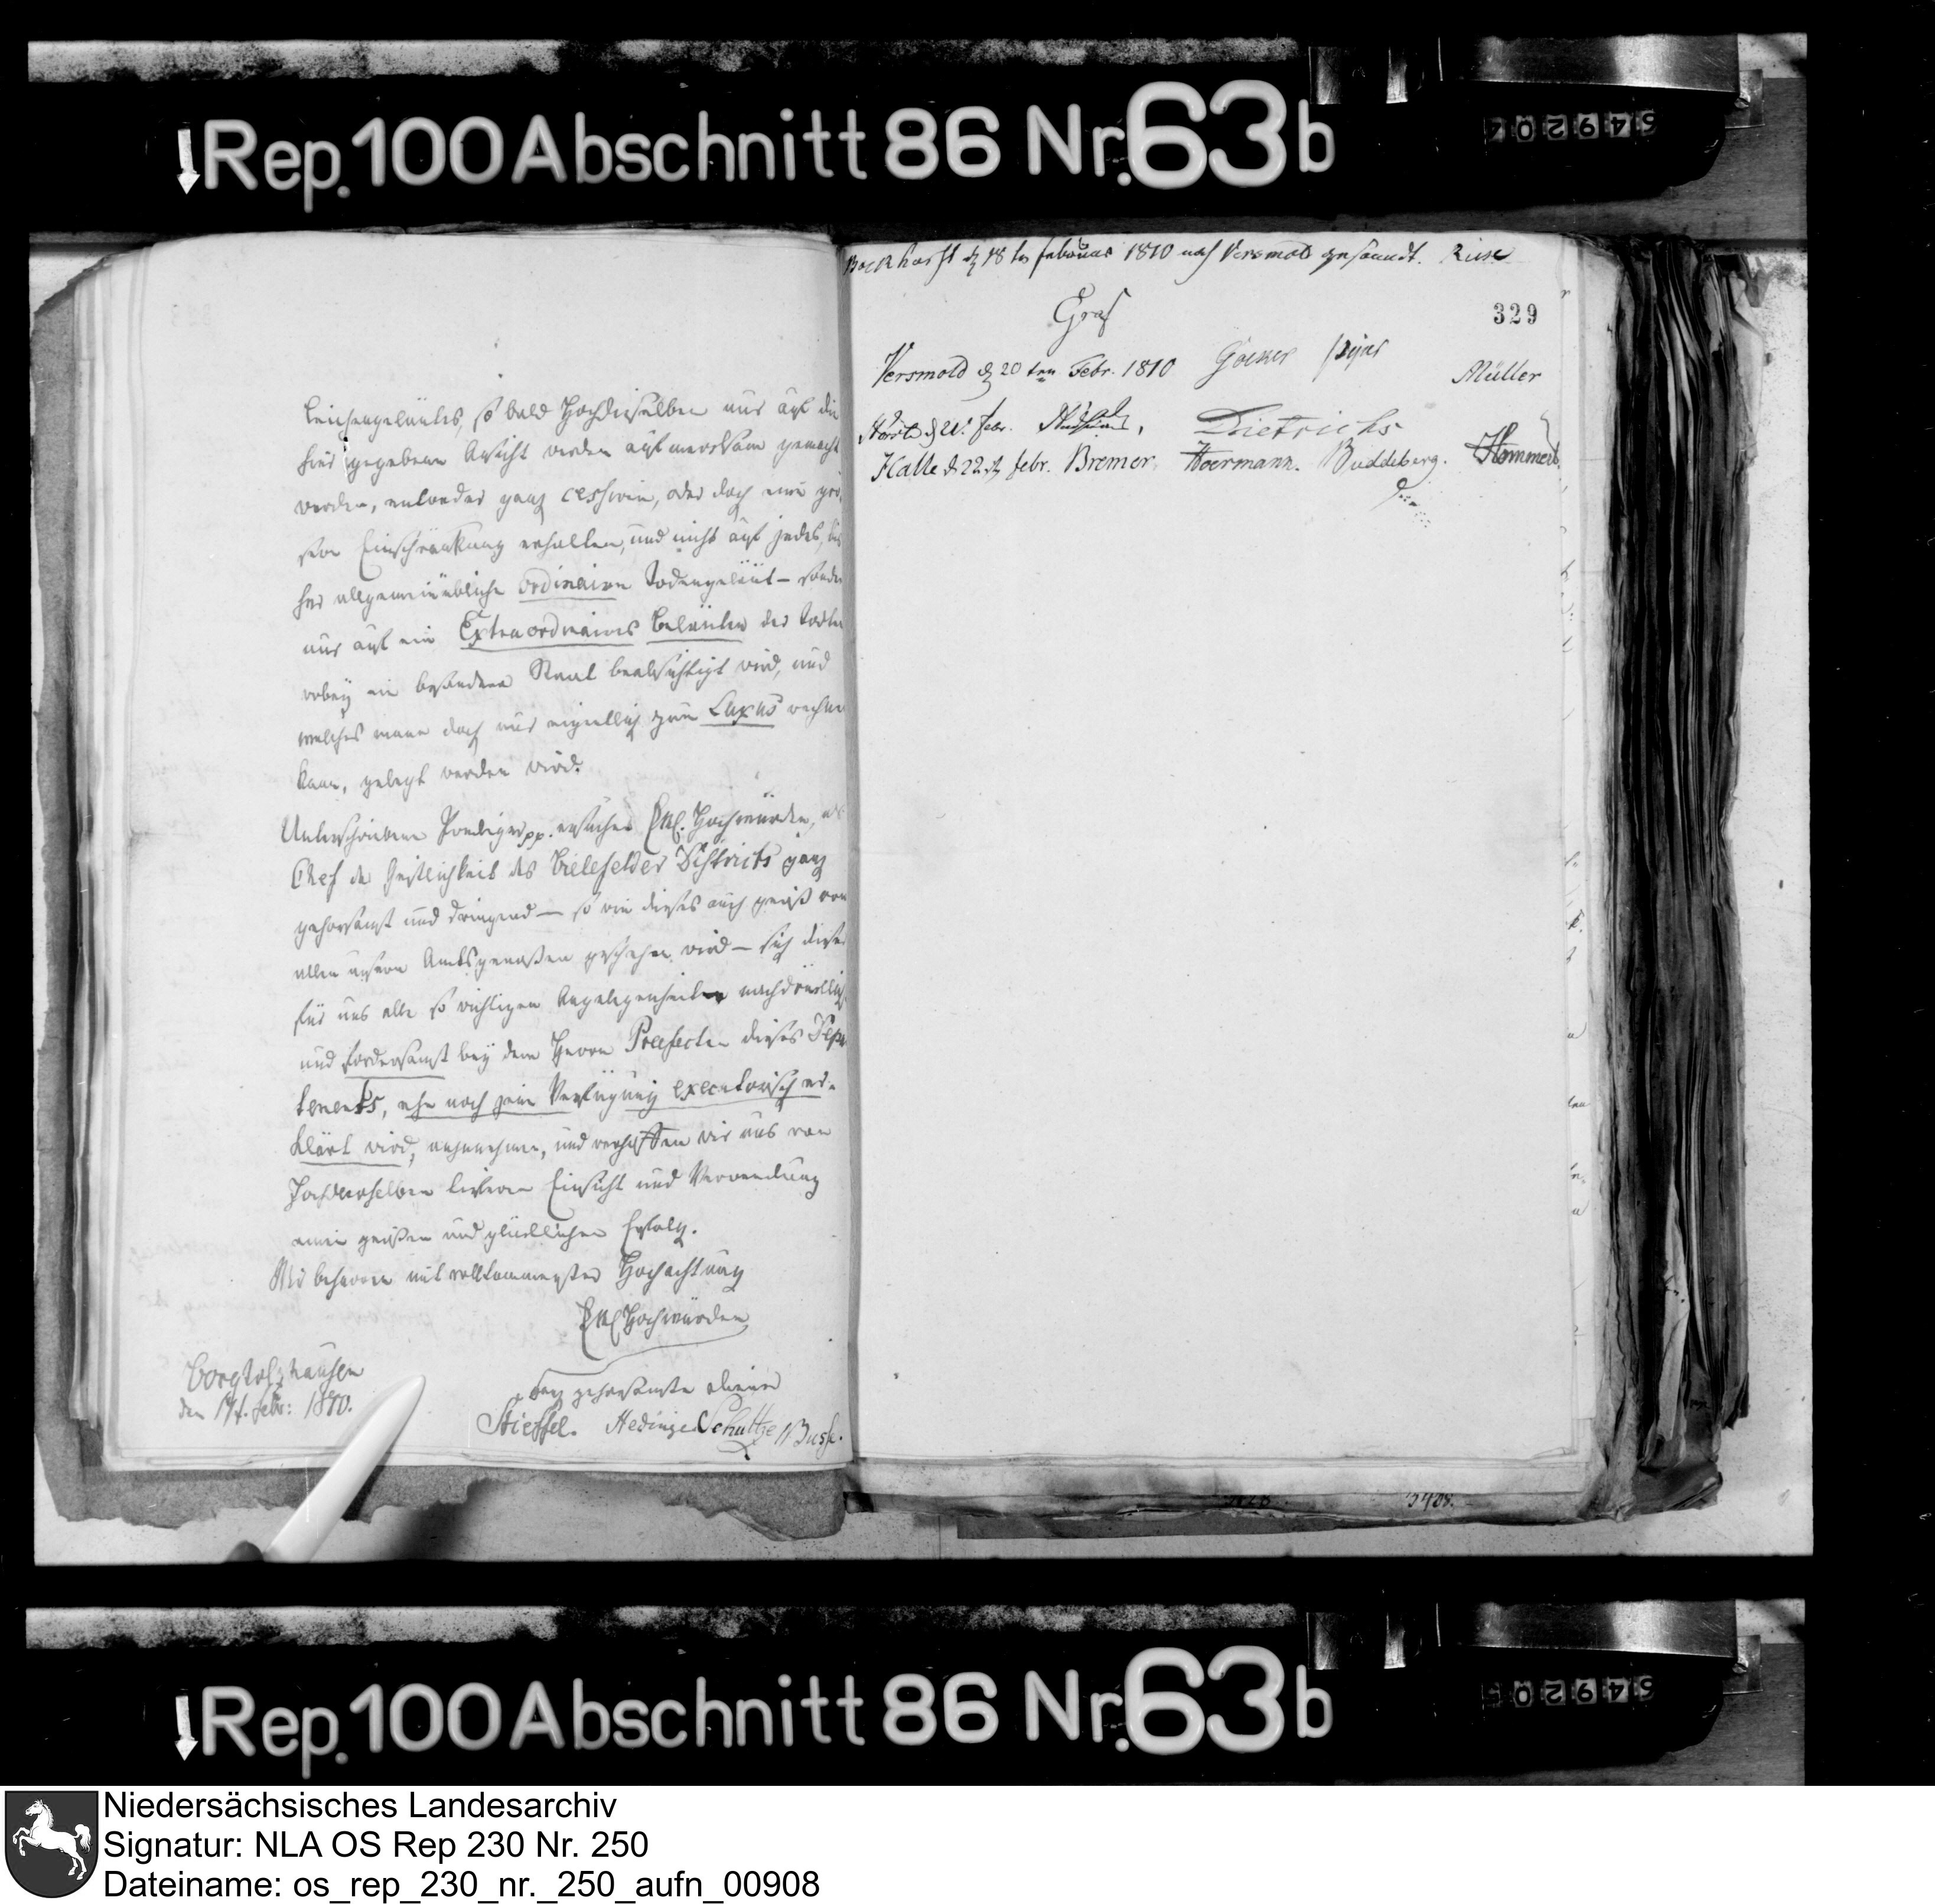 Rep. 100 Abschnitt 86 Nr. 63b
549204
Leichengeläutes, so bald Hochdieselben nur auf die
hier gegebene Ansicht werden aufmerksam gemacht
werden, entweder ganz cessiren, oder doch eine
Einschränkung erhalten, und nicht auf jedes, bis
her allgemeinübliche ordinairen Todengeläut - sondern
nur auf ein Extraordinaires Beläuten der Todten
wobey ein besonderer Staat beabsichtigt wird, und
welches man doch nur eigentlich zum Luxus rechnen
kann, gelegt werden wird.
Unterschriebene Prediger pp. ersuchen Ew. Hochwürden, als
Chef der Geistlichkeit des Bielefelder Districts ganz
gehorsamst und dringend - so wie dieses auch gewiß von
allen unsern Amtsgenoßen geschehen wird - sich dieser
für uns alle so wichtigen Angelegenheiten nachdrücklich
und fordersamst bey dem Herrn Praefecten dieses Depar
tements, ehe noch seine Verfügung executorisch er-
klärt wird, anzunehmen, und verhoffen wir uns von
Hochderselben Einsicht und Verwendung
einen gewißen und glücklichen Erfolg.
Wir beharren mit vollkommenster Hochachtung
Ew Hochwürden
Borgholzhausen
den 17t. Febr: 1810.
ganz gehorsamste Diener
Stieffel. Hedinger Schultze Busse.
Bockhorst d 18ten Februar 1810 nach Versmold gesandt. Riese
329
Graf
Versmold d 20ten Febr. 1810
Müller
d 21. Febr. Dietrichs
Halle d 22 Febr. Bremer. Hoermann. Buddeberg.
Rep. 100 Abschnitt 86 Nr. 63b
549205
Niedersächsisches Landesarchiv
Signatur: NLA OS Rep 230 Nr. 250
Dateiname: os_rep_230_nr._250_aufn_00908